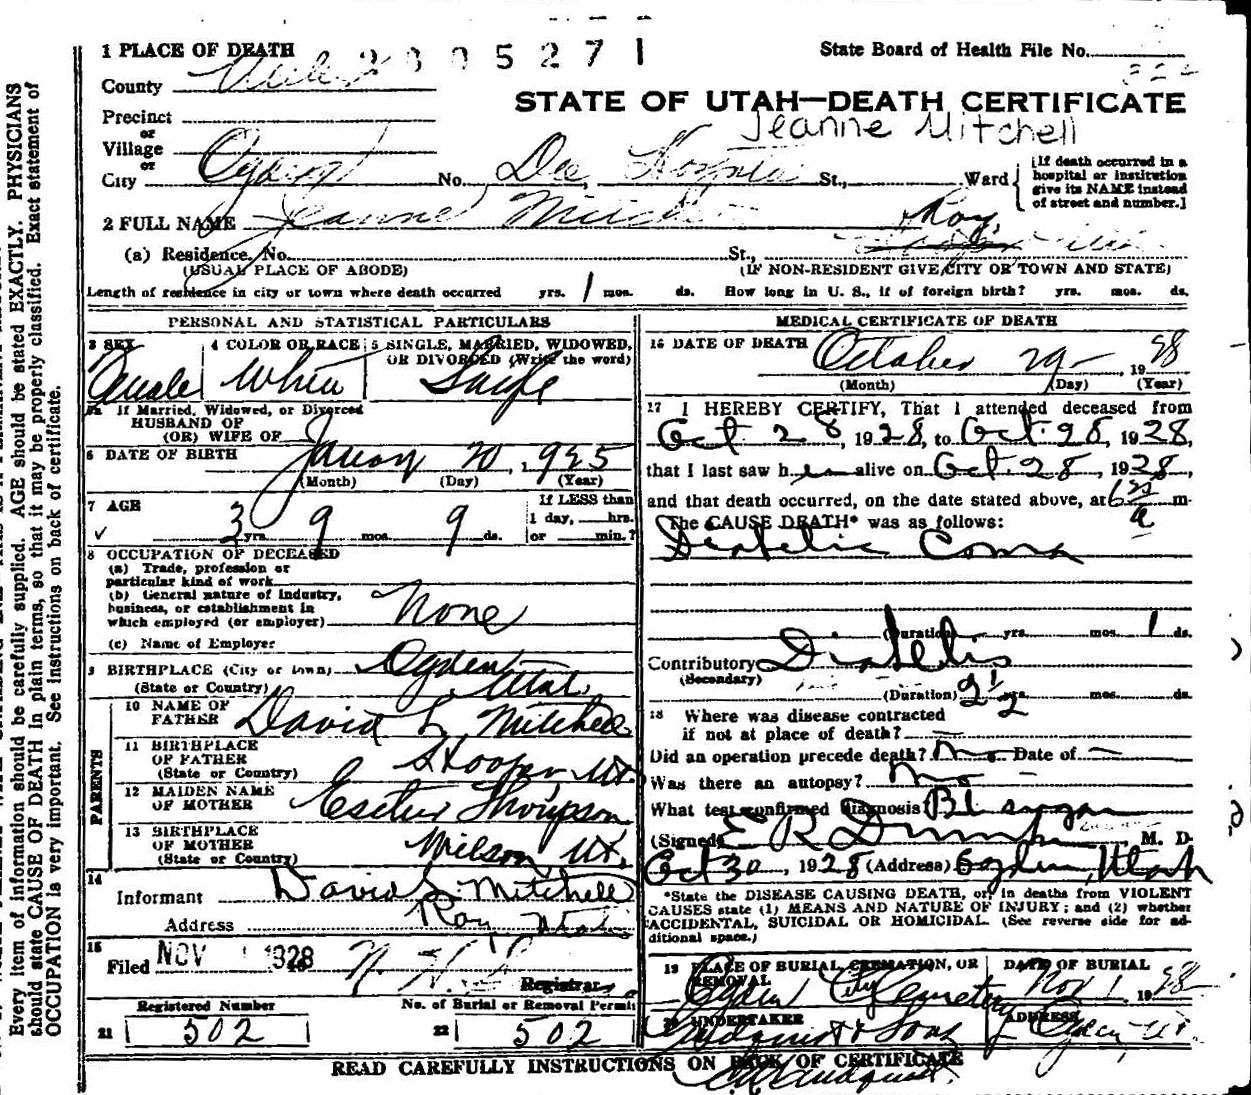 1 PLACE OF DEATH
2805271
State Board of Health File No.
County Weber
STATE OF UTAH—DEATH CERTIFICATE
Jeanne Mitchell
Precinct
or
Village
or
City Ogden No. Dee Hospital St., Ward
[If death occurred in a hospital or institution give its NAME instead of street and number.]
2 FULL NAME Jeanne Mitchell
(a) Residence. No. St., Roy,
(USUAL PLACE OF ABODE) (IF NON-RESIDENT GIVE CITY OR TOWN AND STATE)
Length of residence in city or town where death occurred yrs. 1 mos. ds. How long in U. S., if of foreign birth? yrs. mos. ds.
PERSONAL AND STATISTICAL PARTICULARS
3 SEX Female
4 COLOR OR RACE White
5 SINGLE, MARRIED, WIDOWED, OR DIVORCED (Write the word) Single
5a If Married, Widowed, or Divorced
HUSBAND OF
(OR) WIFE OF
6 DATE OF BIRTH January 20, 1925
(Month) (Day) (Year)
7 AGE 3 yrs. 9 mos. 9 ds.
If LESS than
1 day, hrs.
or min.?
8 OCCUPATION OF DECEASED
(a) Trade, profession or
particular kind of work
(b) General nature of industry,
business, or establishment in
which employed (or employer) None
(c) Name of Employer
9 BIRTHPLACE (City or town) Ogden
(State or Country) Utah
PARENTS
10 NAME OF FATHER David L Mitchell
11 BIRTHPLACE OF FATHER (State or Country) Hooper Ut.
12 MAIDEN NAME OF MOTHER Thompson
13 BIRTHPLACE OF MOTHER (State or Country) Wilson, Ut.
14 Informant David L Mitchell
Address Roy, Utah
15 Filed NOV 1 1928
Registrar.
Registered Number No. of Burial or Removal Permit
21 502 22 502
MEDICAL CERTIFICATE OF DEATH
16 DATE OF DEATH October 29 1928
(Month) (Day) (Year)
17 I HEREBY CERTIFY, That I attended deceased from
Oct 28, 1928, to Oct. 28, 1928,
that I last saw her alive on Oct. 28, 1928,
and that death occurred, on the date stated above, at 6 a m.
The CAUSE DEATH* was as follows:
Diabetic Coma
(Duration) yrs. mos. 1 ds.
Contributory Diabetis
(Secondary)
(Duration) 2 1/2 yrs. mos. ds.
18 Where was disease contracted
if not at place of death?
Did an operation precede death? No Date of
Was there an autopsy? no
What test confirmed diagnosis Bl sugar
(Signed) E R Dumke M. D.
Oct 30, 1928 (Address) Ogden, Utah
*State the DISEASE CAUSING DEATH, or, in deaths from VIOLENT
CAUSES state (1) MEANS AND NATURE OF INJURY; and (2) whether
ACCIDENTAL, SUICIDAL OR HOMICIDAL. (See reverse side for ad-
ditional space.)
19 PLACE OF BURIAL, CREMATION, OR REMOVAL Ogden City Cemetery
DATE OF BURIAL Nov 1 1928
20 UNDERTAKER Lindquist & Sons
ADDRESS Ogden, Ut.
READ CAREFULLY INSTRUCTIONS ON BACK OF CERTIFICATE
Lindquist
Every item of information should be carefully supplied. AGE should be stated EXACTLY. PHYSICIANS
should state CAUSE OF DEATH in plain terms, so that it may be properly classified. Exact statement of
OCCUPATION is very important. See instructions on back of certificate.